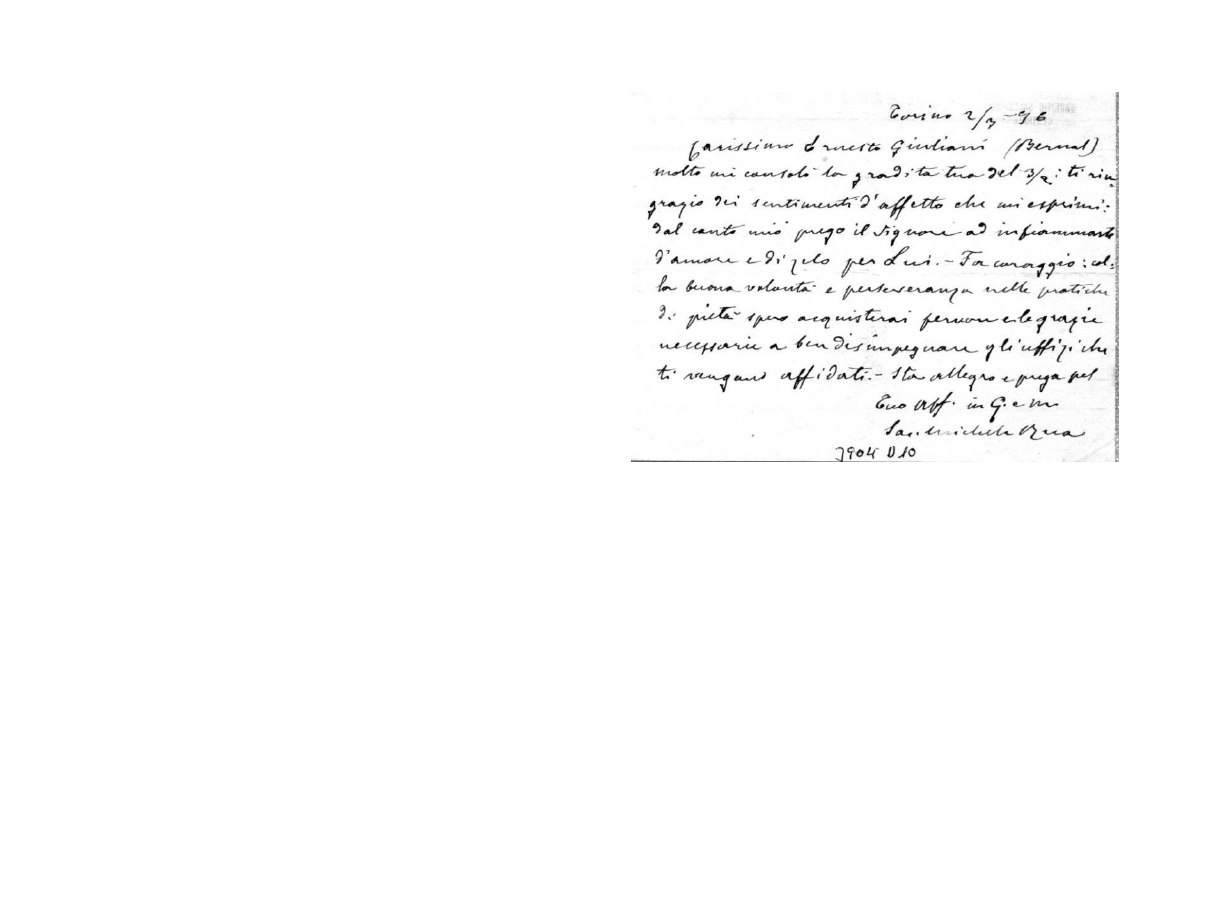 Torino 2/3 -96
Carissimo Ernesto Giuliani (Bernal)
molto mi consolò la gradita tua del 3/2: ti rin-
grazio dei sentimenti d'affetto che mi esprimi:
dal canto mio prego il Signore ad infiammarti
d'amore e di zelo per Lui. - Fa coraggio: col-
la buona volontà e perseveranza nelle pratiche
di pietà spero acquisterai fervore e le grazie
necessarie a ben disimpegnare gli uffizi che
ti vengano affidati. - Sta allegro e prega pel
Tuo aff. in G. e M.
Sac. Michele Rua
3904 D10